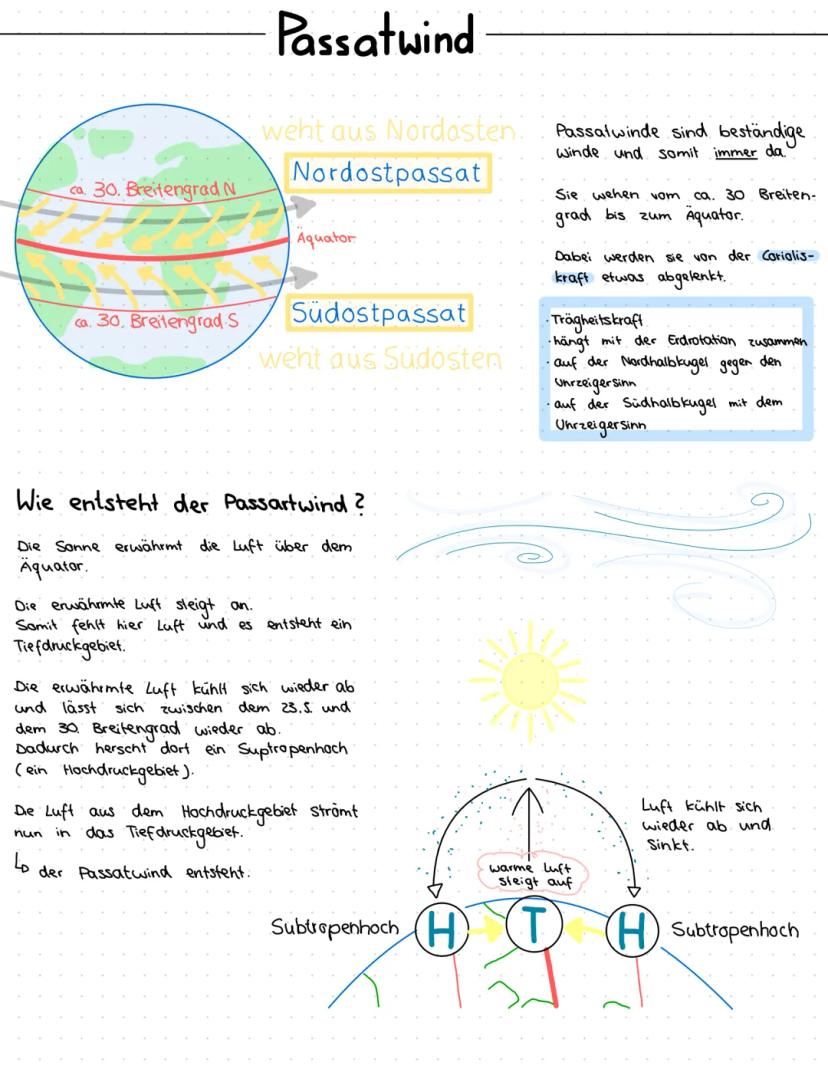 Passatwind
weht aus Nordosten
Nordostpassat
ca. 30. Breitengrad N
Äquator
ca. 30. Breitengrad S
Südostpassat
weht aus Südosten
Passatwinde sind beständige
Winde und somit immer da.
Sie wehen vom ca. 30 Breiten-
grad bis zum Äquator.
Dabei werden sie von der Coriolis-
kraft etwas abgelenkt.
Trägheitskraft
· hängt mit der Erdrotation zusammen
· auf der Nordhalbkugel gegen den
Uhrzeigersinn
· auf der Südhalbkugel mit dem
Uhrzeigersinn
Wie entsteht der Passartwind?
Die Sonne erwährmt die Luft über dem
Äquator.
Die erwährmte Luft steigt an.
Somit fehlt hier Luft und es entsteht ein
Tiefdruckgebiet.
Die erwährmte Luft kühlt sich wieder ab
und lässt sich zwischen dem 23.5. und
dem 30. Breitengrad wieder ab.
Dadurch herscht dort ein Suptropenhoch
(ein Hochdruckgebiet).
De Luft aus dem Hochdruckgebiet strömt
nun in das Tiefdruckgebiet.
↳ der Passatwind entsteht.
Luft kühlt sich
wieder ab und
sinkt.
warme Luft
steigt auf
Subtropenhoch H T H Subtropenhoch